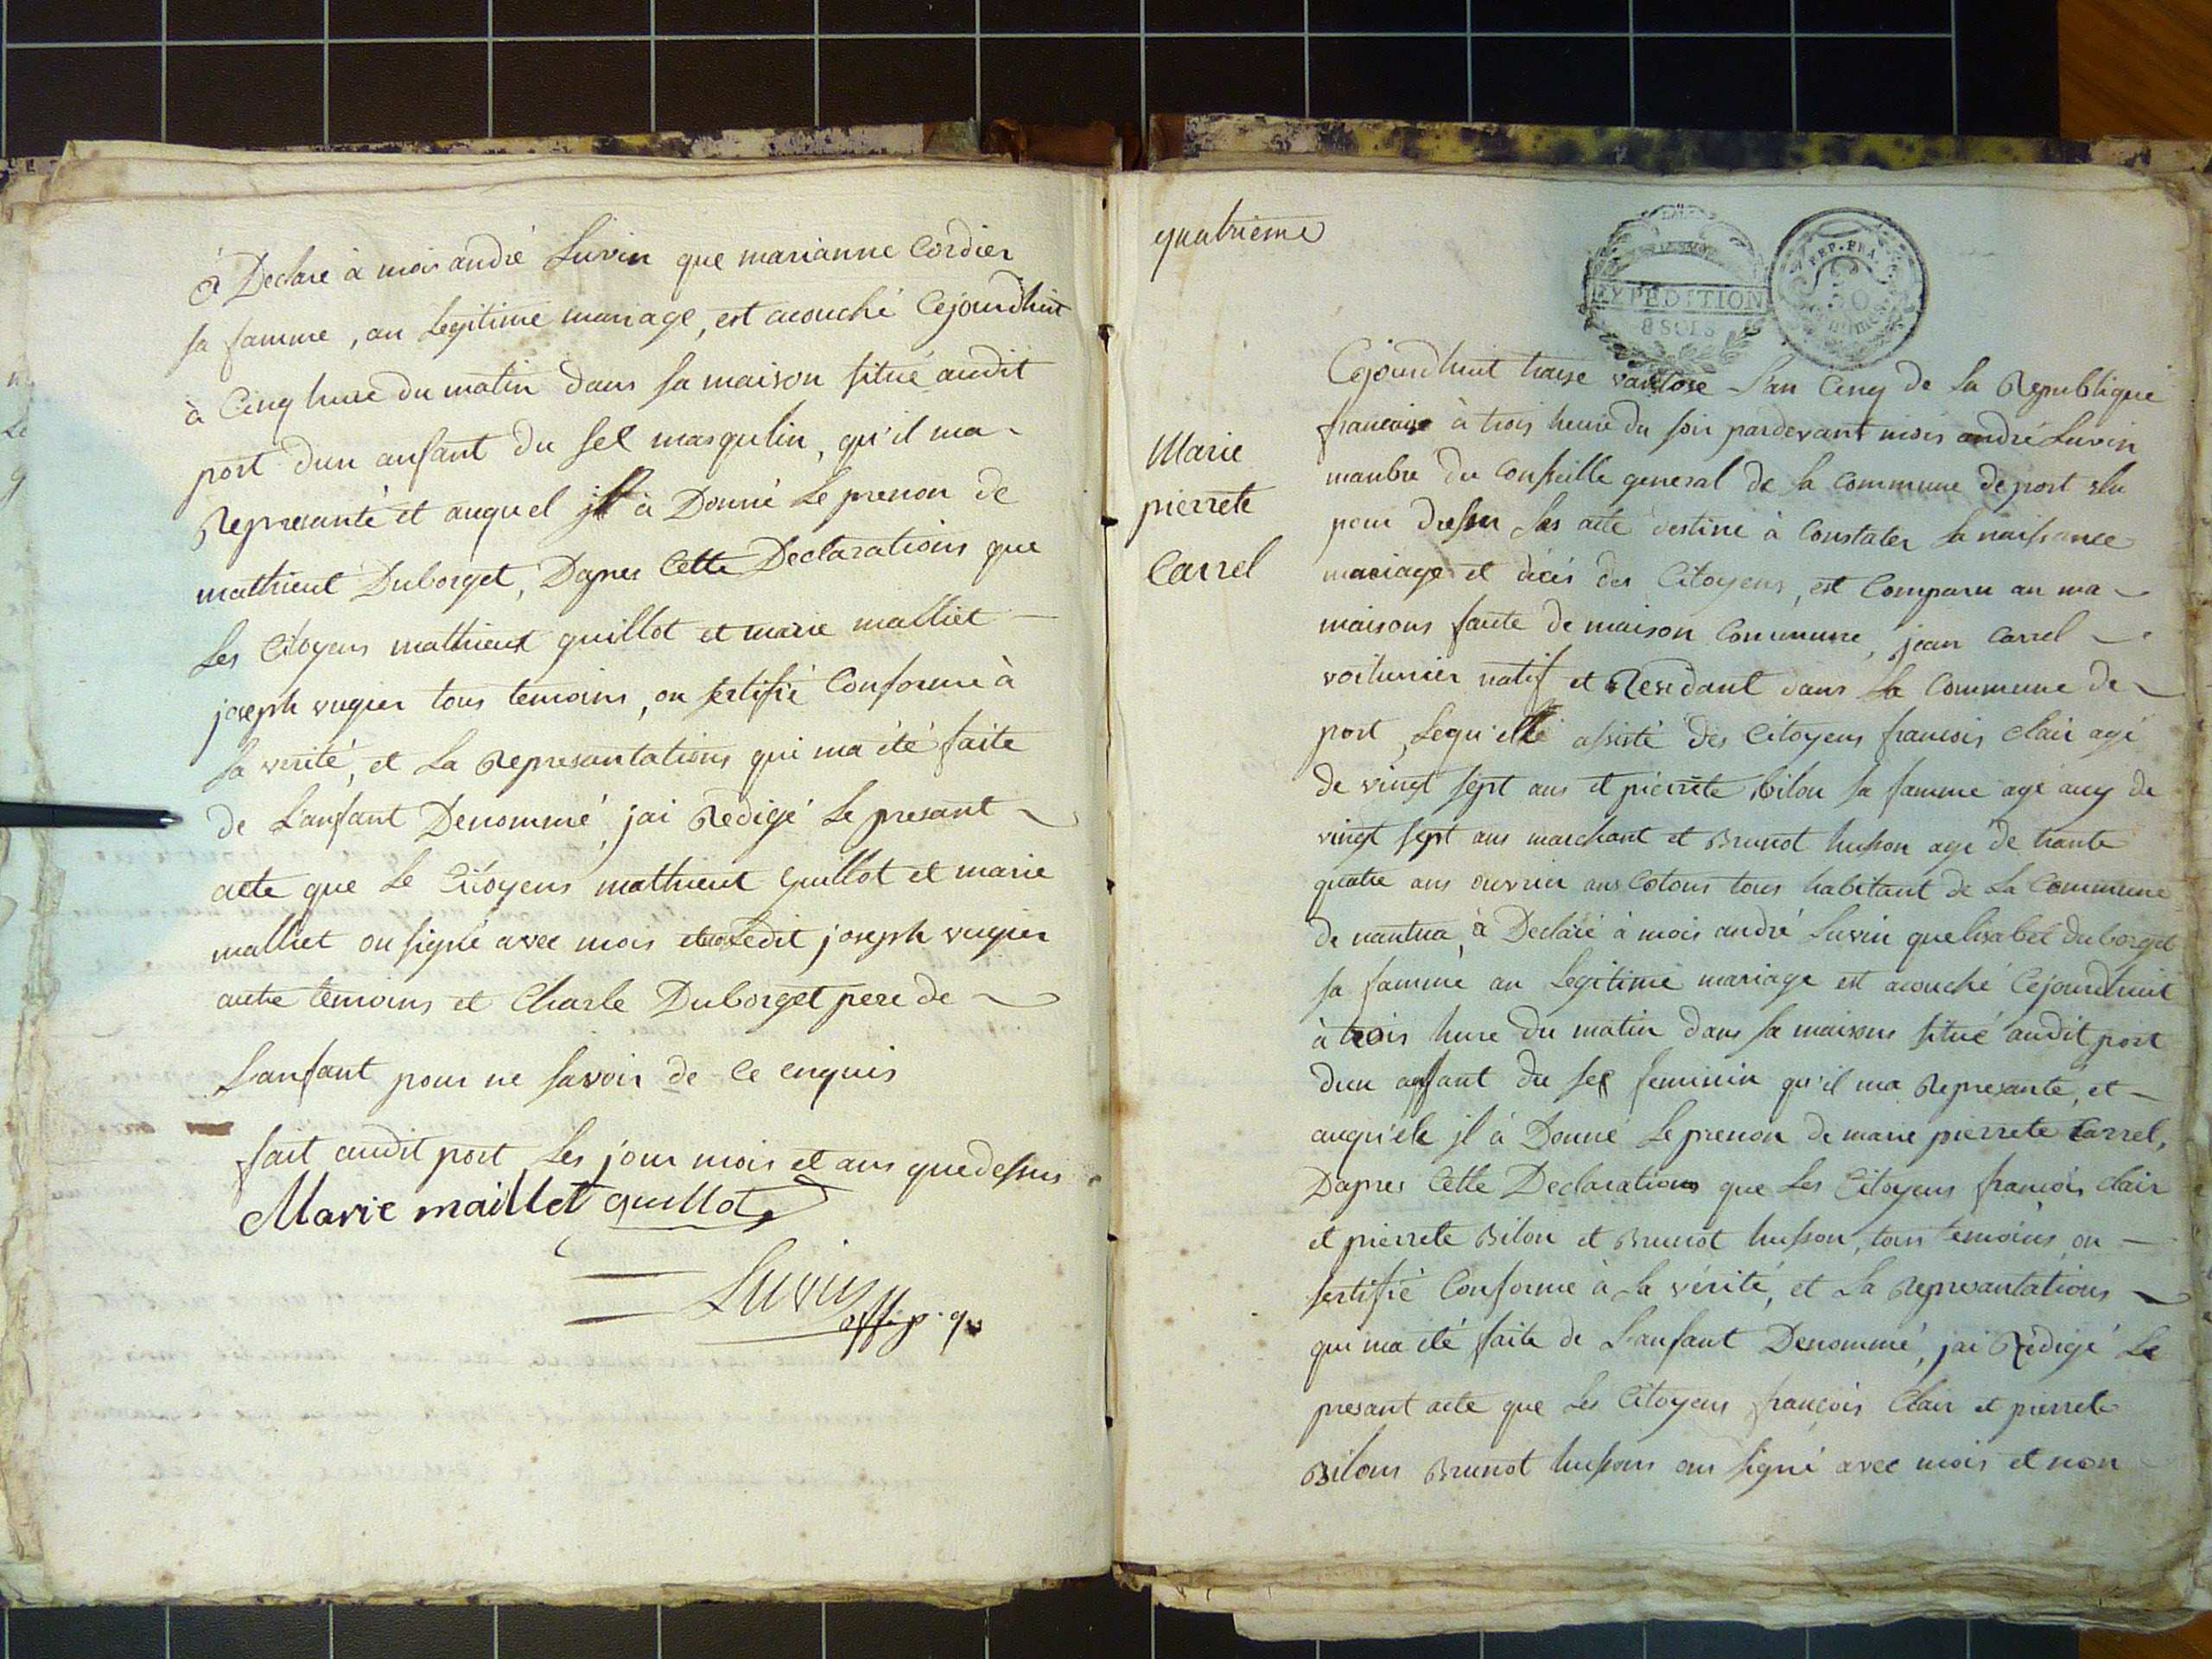 à Declaré à mois andré Luvin que marianne Cordier
sa famme, an Legitime mariage, est acouché Cejourdhuit
à Cinq hure du matin dans sa maison situé audit
port dun anfant du sel masqulin, qu'il ma
Represanté et auquel jl à Donné Le prenon de
mathieut Duborget, Dapres Cette Declarations que
Les Citoyens mathieux guillot et marie malliet
joseph vugier tous temoins, on sertifié Conforme à
la verité, et La Represantations qui ma été faite
de L'anfant Denommé, jai Redigé Le presant
acte que Le Citoyens mathieut guillot et marie
malliet on signé avec mois Ledit joseph vugier
autre temoins et Charle Duborget pere de
Lanfant pour ne savoir de Ce enquis
fait audit port Les jour mois et ans quedessus
Marie maillet guillot
Luvin
off. p. q.
quatrieme
EXPEDITION
8 SOLS
REP. FRA.
50
centimes
Marie
pierrete
Carrel
Cejourdhuit traise vantose L'an Cinq de La Republique
francaise à trois heure du soir pardevant mois andré Luvin
manbre du Conseille general de la Commune de port elu
pour dresser les acte destiné à Constater La naissance
mariage et décés des Citoyens, est Comparu an ma
maisons faute de maison Commune, jean Carrel
voiturier natif et Residant dans la Commune de
port, Lequ'elle assisté des Citoyens francois clair agé
de vingt sept ans et pierrete bilon sa famme agé aucy de
vingt sept ans marchant et Brunot husson agé de trante
quatre ans ouvrier ans Cotons tous habitant de La Commune
de nantua, à Declaré à mois andré Luvin quelisabet duborget
sa famme an Legitime mariage est acouché Cejourdhuit
à trois hure du matin dans sa maisons situé audit port
dun anfant du sex feminin qu'il ma Represanté, et
auqu'ele jl à Donné Le prenon de marie pierrete Carrel,
Dapres Cette Declarations que Les Citoyens francois clair
et pierrete Bilon et Brunot husson, tous temoins on
sertifié Conforme à La vérité, et La Represantations
qui ma été faite de L'anfant Denommé, jai Rédigé Le
presant acte que Les Citoyens françois Clair et pierrete
Bilons Brunot hussons on signé avec mois et non